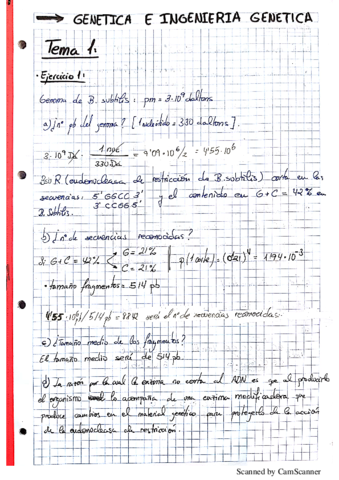 → GENETICA E INGENIERIA GENETICA
Tema 1:
· Ejercicio 1:
Genoma de B. subtilis: pm = 3·10⁹ daltons
a) ¿nº pb del genoma? [1 nucleótido = 330 daltons].
3·10⁹ Da · 1 npt / 330 Da = 9'09·10⁶/2 = 4'55·10⁶
R (endonucleasa de restricción de B. subtilis) corta en las
secuencias: 5' GGCC 3' y el contenido en G+C = 42% en
3' CCGG 5'
B. Subtilis.
b) ¿nº de secuencias reconocidas?
Si G+C = 42% G = 21% C = 21% p(1 corte) = (0'21)⁴ = 1'94·10⁻³
· tamaño fragmentos = 514 pb
4'55·10⁶/514 pb = 8842 será el nº de secuencias reconocidas.
c) ¿Tamaño medio de los fragmentos?
El tamaño medio será de 514 pb.
d) La razón por la cual la enzima no corta al ADN es que al producirla
el organismo la acompaña de una enzima modificadora que
produce cambios en el material genético para protegerlo de la acción
de la endonucleasa de restricción.
Scanned by CamScanner